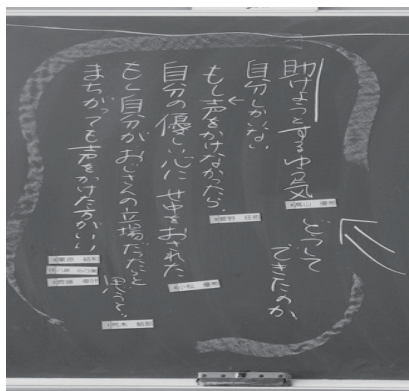 助けようとするゆう気
どうして
できたのか
自分しかいない
もし声をかけなかったら、
自分の優しい心に せ中をおされた
もし自分がおじいさんの立場だったと
思うと、
まちがっても声をかけた方がいい